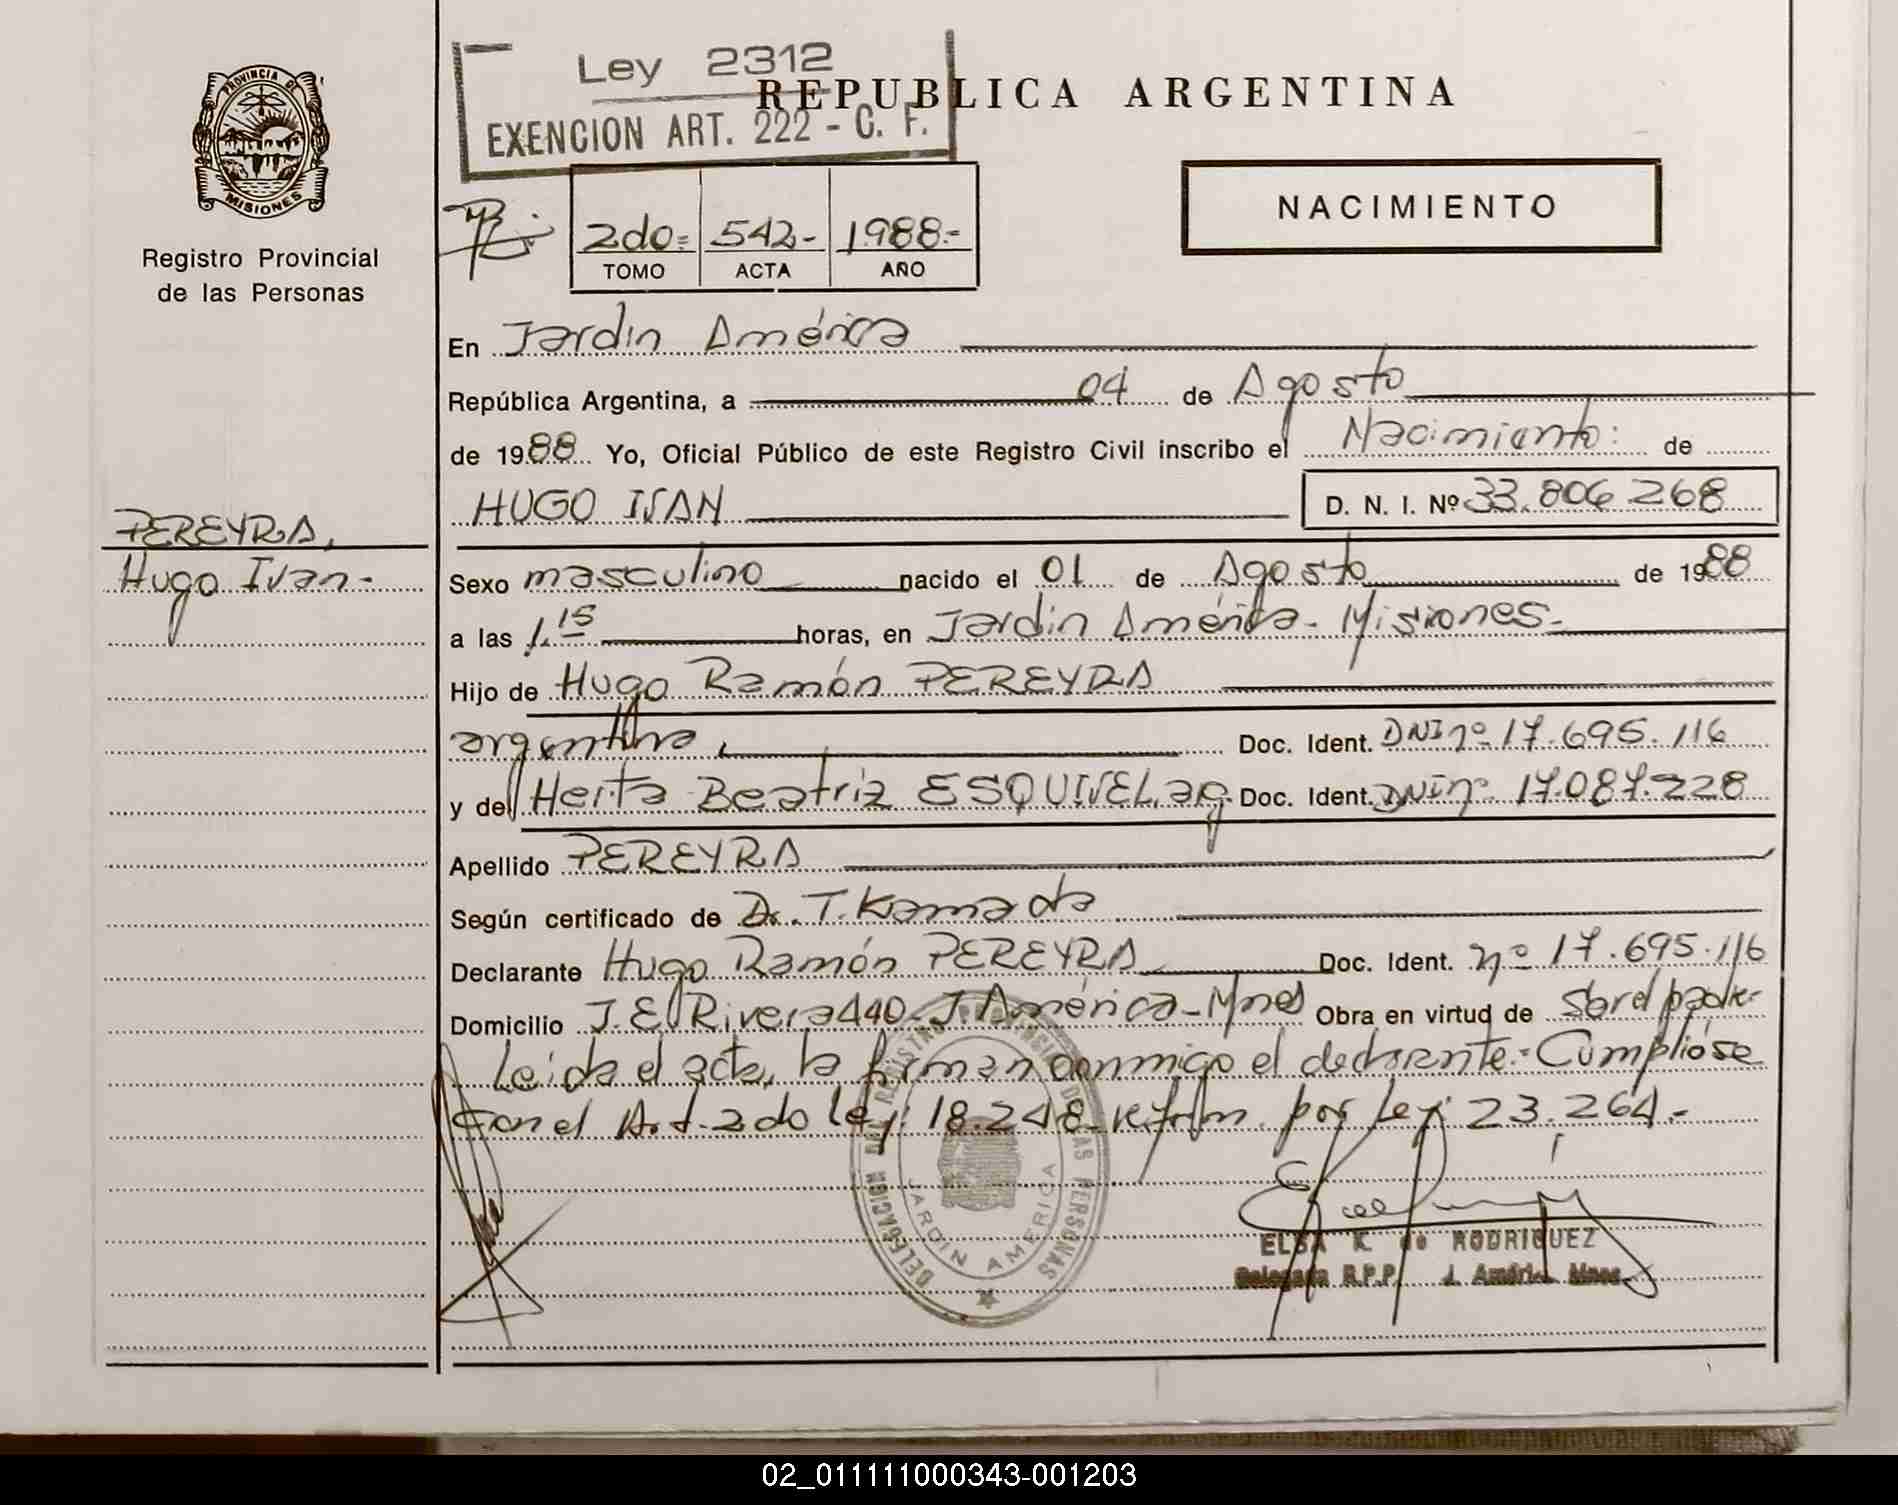 PROVINCIA DE
MISIONES
Registro Provincial
de las Personas
PEREYRA,
Hugo Ivan-
Ley 2312
EXENCION ART. 222 - C. F.
REPUBLICA ARGENTINA
2do= 542- 1988.-
TOMO ACTA AÑO
NACIMIENTO
En Jardin América
República Argentina, a 04 de Agosto
de 1988 Yo, Oficial Público de este Registro Civil inscribo el Nacimiento: de
HUGO IVAN D. N. I. Nº 33.806.268
Sexo masculino nacido el 01 de Agosto de 1988
a las 1.15 horas, en Jardin América- Misiones-
Hijo de Hugo Ramón PEREYRA
argentino, Doc. Ident. DNI nº 17.695.116
y de Herta Beatriz ESQUIVEL, arg. Doc. Ident. DNI nº 17.087.228
Apellido PEREYRA
Según certificado de Dr. T. Kamada
Declarante Hugo Ramón PEREYRA Doc. Ident. nº 17.695.116
Domicilio J. E. Rivera 440- J. América- Mnes Obra en virtud de ser el padre-
Leida el acta, la firman conmigo el declarante.- Cumplióse
con el Art. 2do ley: 18.248 reform. por Ley 23.264.-
DELEGACION DEL REGISTRO PROVINCIAL DE LAS PERSONAS
JARDIN AMERICA
ELSA K. de RODRIGUEZ
Delegada R.P.P. J. América Mnes.
02_011111000343-001203